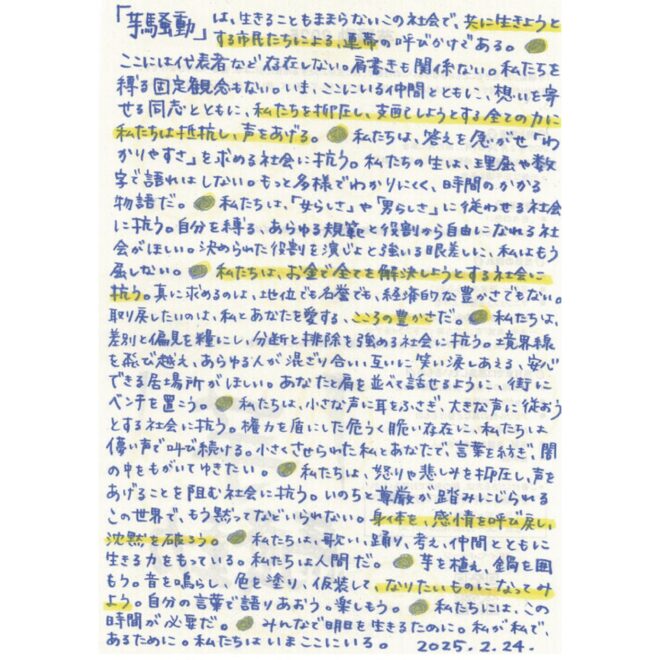 「芋騒動」は、生きることもままらないこの社会で、共に生きようと
する市民たちによる、連帯の呼びかけである。
ここには代表者など存在しない。肩書きも関係ない。私たちを
縛る固定観念もない。いま、ここにいる仲間とともに、想いを寄
せる同志とともに、私たちを抑圧し、支配しようとする全ての力に
私たちは抵抗し、声をあげる。 私たちは、答えを急がせ「わ
かりやすさ」を求める社会に抗う。私たちの生は、理屈や数
字で語れはしない。もっと多様でわかりにくく、時間のかかる
物語だ。 私たちは、「女らしさ」や「男らしさ」に従わせる社会
に抗う。自分を縛る、あらゆる規範と役割から自由になれる社
会がほしい。決められた役割を演じよと強いる眼差しに、私はもう
屈しない。 私たちは、お金で全てを解決しようとする社会に
抗う。真に求めるのは、地位でも名誉でも、経済的な豊かさでもない。
取り戻したいのは、私とあなたを愛する、こころの豊かさだ。 私たちは、
差別と偏見を糧にし、分断と排除を強める社会に抗う。境界線
を飛び越え、あらゆる人が混ざり合い、互いに笑い涙しあえる、安心
できる居場所がほしい。あなたと肩を並べて話せるように、街に
ベンチを置こう。 私たちは、小さな声に耳をふさぎ、大きな声に従おう
とする社会に抗う。権力を盾にした危うく脆い存在に、私たちは
儚い声で叫び続ける。小さくさせられた私とあなたで、言葉を紡ぎ、闇
の中をもがいてゆきたい。 私たちは、怒りや悲しみを抑圧し、声を
あげることを阻む社会に抗う。いのちと尊厳が踏みにじられる
この世界で、もう黙ってなどいられない。身体を、感情を呼び戻し、
沈黙を破ろう。 私たちは、歌い、踊り、考え、仲間とともに
生きる力をもっている。私たちは人間だ。 芋を植え、鍋を囲
もう。音を鳴らし、色を塗り、仮装して、なりたいものになってみ
よう。自分の言葉で語りあおう。楽しもう。 私たちには、この
時間が必要だ。 みんなで明日を生きるために。私が私で、
あるために。私たちはいまここにいる。 2025.2.24.